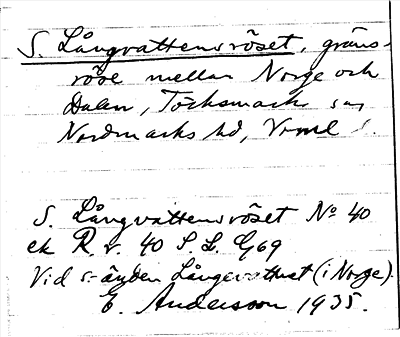 S. Långvattensröset, gräns-
röse mellan Norge och
Dalen, Töcksmarks sn,
Nordmarks hd, Vrml l.
S. Långvattensröset No 40
ek R.r. 40 S.L. G69
Vid s-änden Långevattnet (i Norge).
E. Andersson 1935.